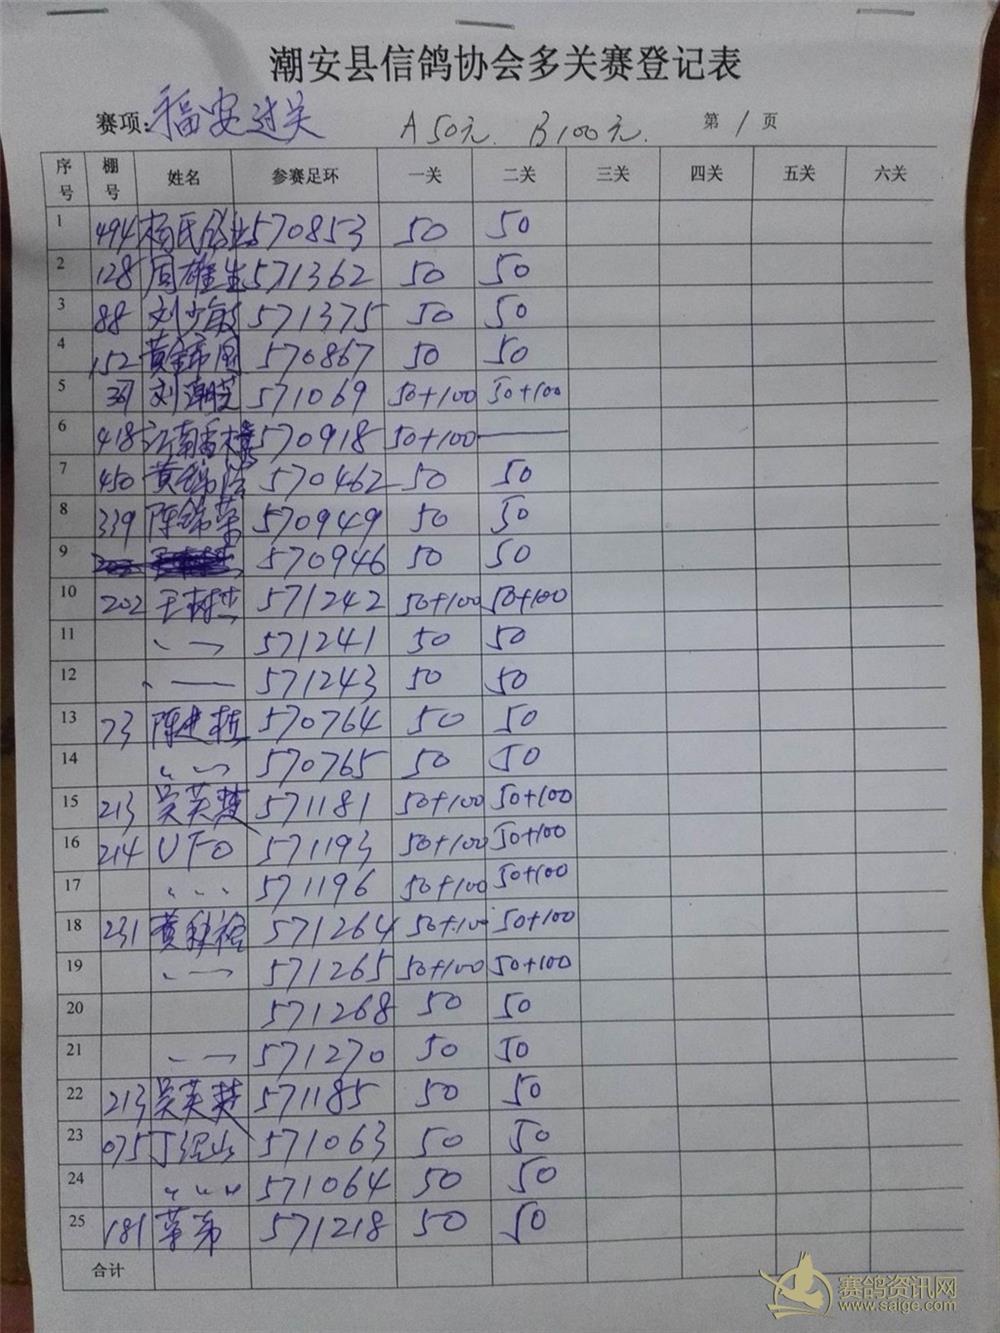 潮安县信鸽协会多关赛登记表
赛项: 福安过关 A 50元. B 100元. 第 1 页
序号 棚号 姓名 参赛足环 一关 二关 三关 四关 五关 六关
1 494 杨氏 570853 50 50
2 128 周雄生 571362 50 50
3 88 刘少敏 571375 50 50
4 152 黄 570867 50 50
5 37 刘潮 571069 50+100 50+100
6 418 江南 570918 50+100 —
7 450 黄锦 570462 50 50
8 339 陈锦荣 570949 50 50
9 570946 50 50
10 202 王树杰 571242 50+100 50+100
11 571241 50 50
12 571243 50 50
13 73 陈建 570764 50 50
14 570765 50 50
15 213 吴英楚 571181 50+100 50+100
16 214 UFO 571193 50+100 50+100
17 571196 50+100 50+100
18 231 黄 571264 50+100 50+100
19 571265 50+100 50+100
20 571268 50 50
21 571270 50 50
22 213 吴英楚 571185 50 50
23 075 丁 571063 50 50
24 571064 50 50
25 181 571218 50 50
合计
赛鸽资讯网
www.saige.com